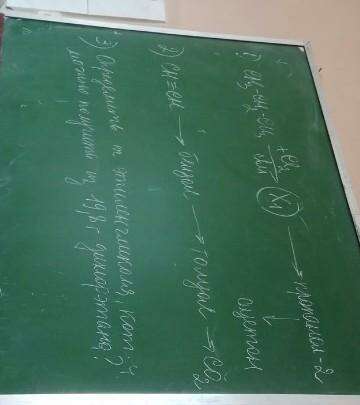 1) CH₃-CH₂-CH₃ +Cl₂ свет (X₁) → пропанол-2
↓
ацетон
2) CH≡CH → бензол → толуол → CO₂
3) Определить m этиленгликоля, котй
можно получить из 19,8 г дихлорэтана?